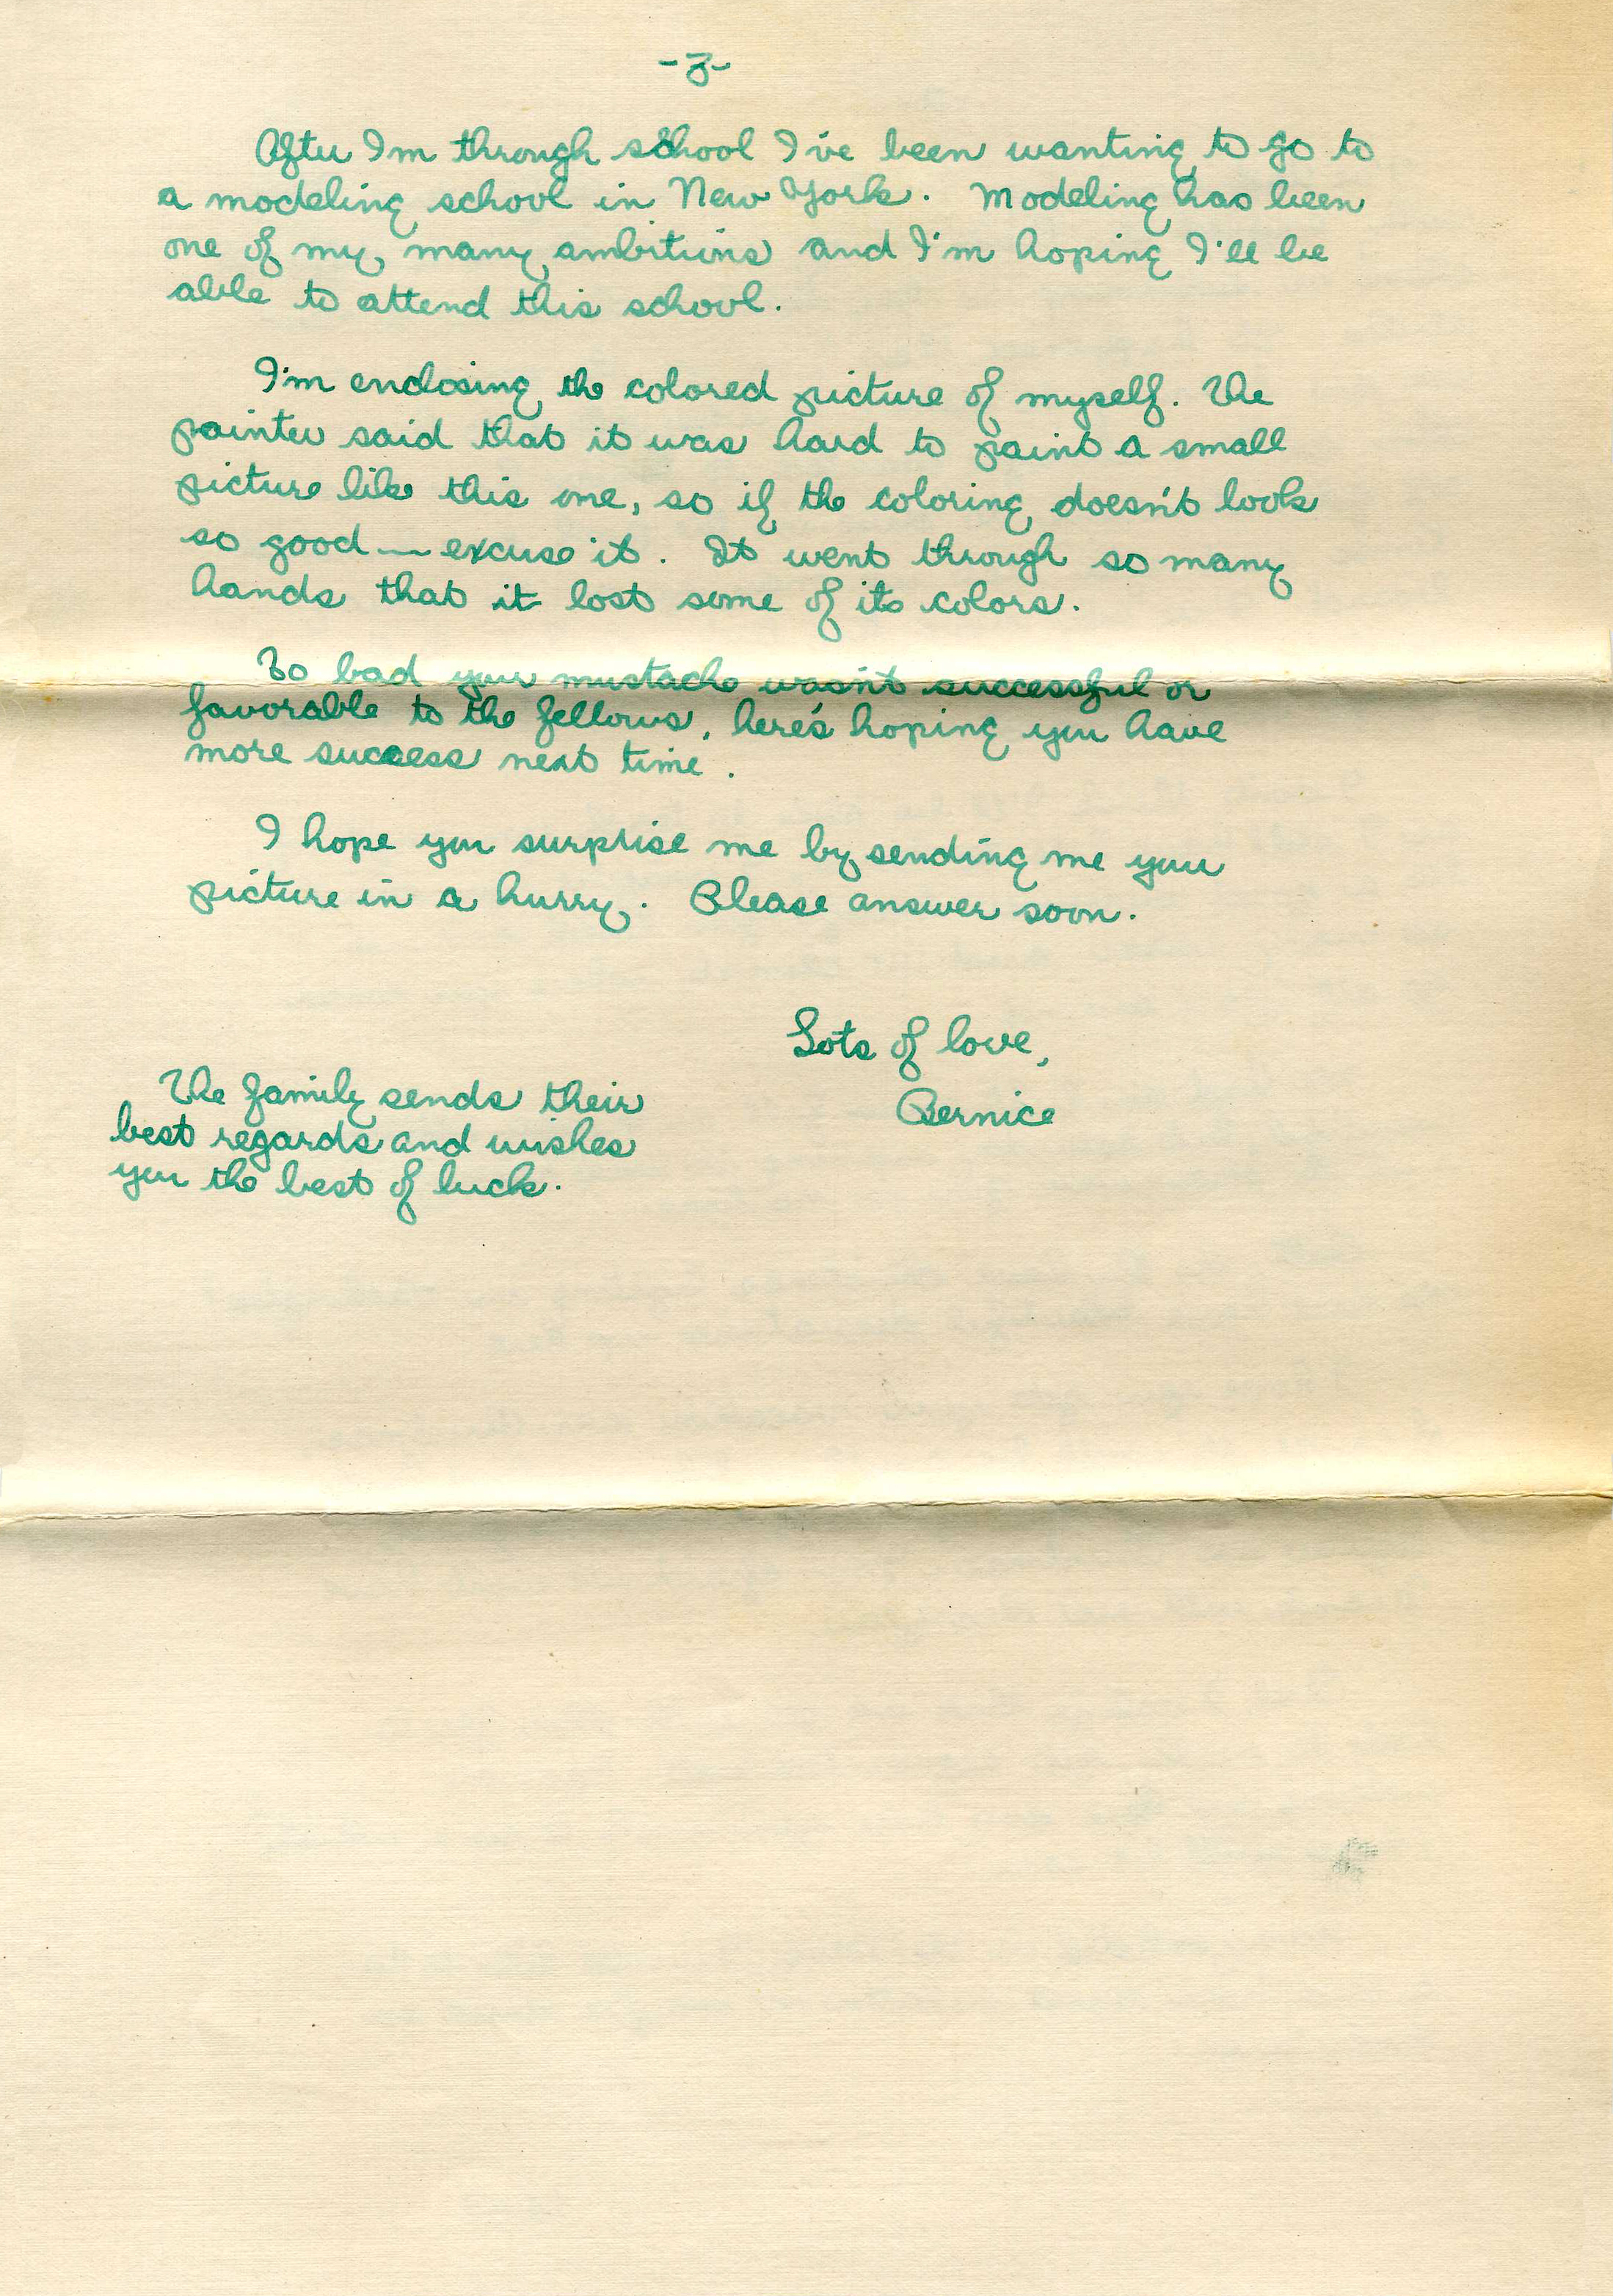 -3-
After I'm through school I've been wanting to go to
a modeling school in New York. Modeling has been
one of my many ambitions and I'm hoping I'll be
able to attend this school.
I'm enclosing the colored picture of myself. The
painter said that it was hard to paint a small
picture like this one, so if the coloring doesn't look
so good — excuse it. It went through so many
hands that it lost some of its colors.
To bad your mustache wasn't successful or
favorable to the fellows, here's hoping you have
more success next time.
I hope you surprise me by sending me your
picture in a hurry. Please answer soon.
Lots of love,
Bernice
The family sends their
best regards and wishes
you the best of luck.